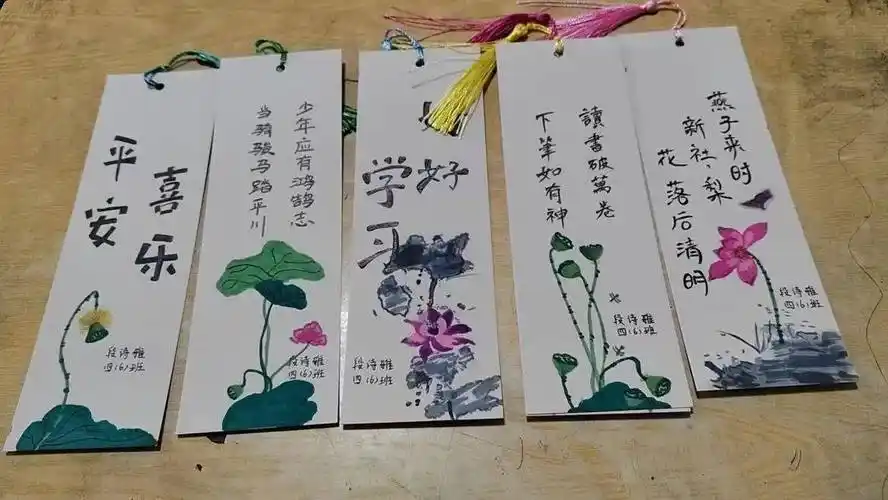 平安
喜乐
段诗雅
四(6)班
少年应有鸿鹄志
当骑骏马踏平川
段诗雅
四(6)班
好
学习
段诗雅
四(6)班
讀書破萬卷
下筆如有神
段诗雅
四(6)班
燕子来时
新社、梨
花落后清明
段诗雅
四(6)班